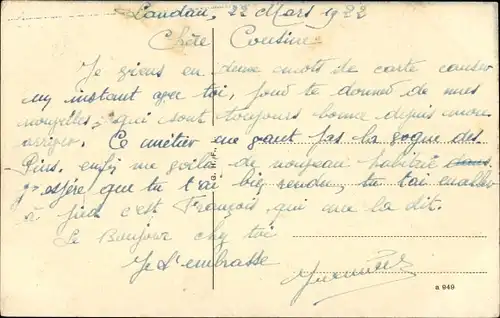 Landau, 22 Mars 1922
Chère Cousine
Je viens en deux mots de carte causer
un instant avec toi, pour te donner de mes
nouvelles qui sont toujours bonne depuis mon
arriver. Ce métier ne vaut pas la gogne des
Pins. enfin me voilà de nouveau habitué
j'espère que tu t'ai bien rendu, tu t'ai
à pied c'est François qui me la dit.
Le Bonjour chez toi
Je t'embrasse
a 949